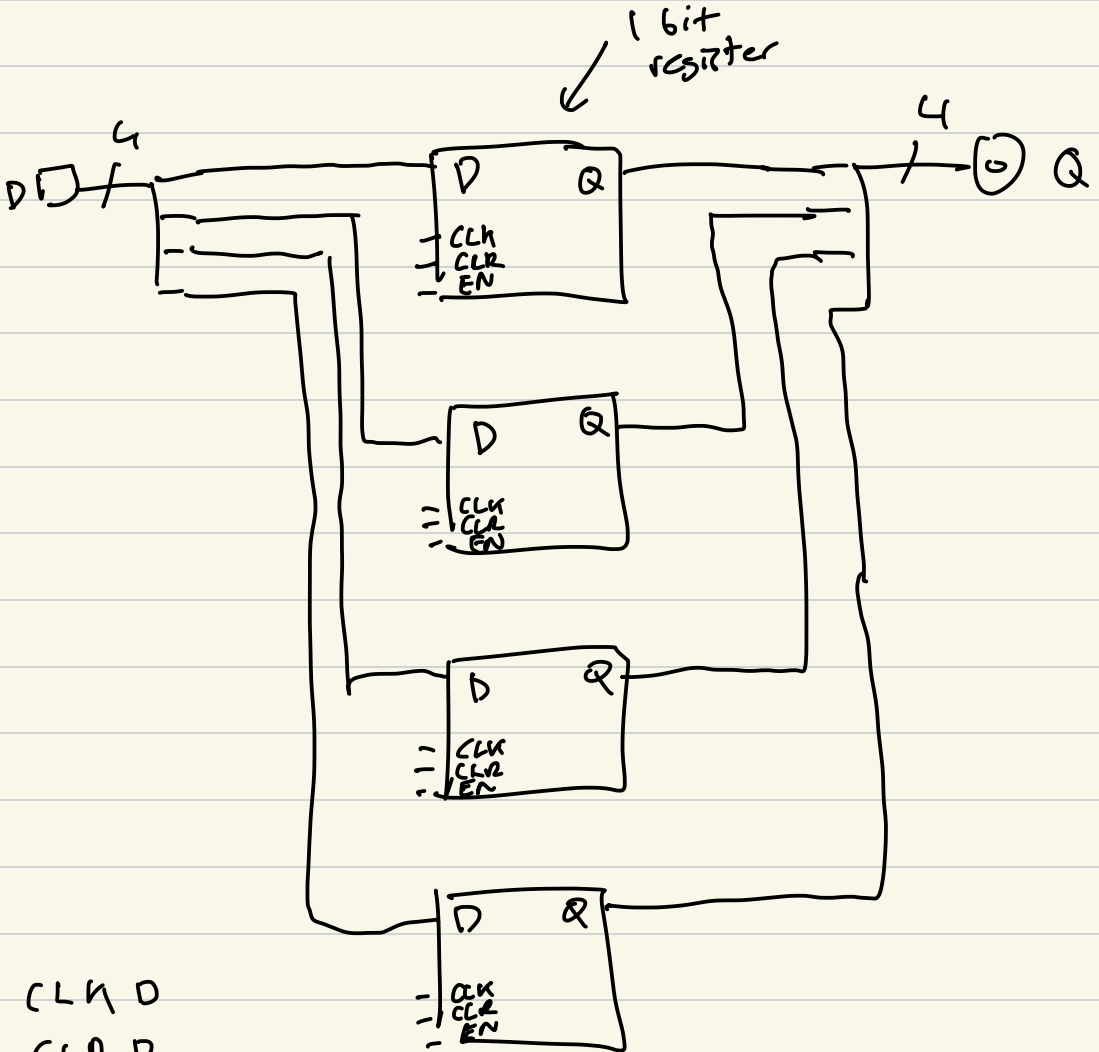 1 bit
register
4
4
D
D Q
Q
CLK
CLR
EN
D Q
CLK
CLR
EN
D Q
CLK
CLR
EN
D Q
CLK
CLR
EN
CLK D
CLR D